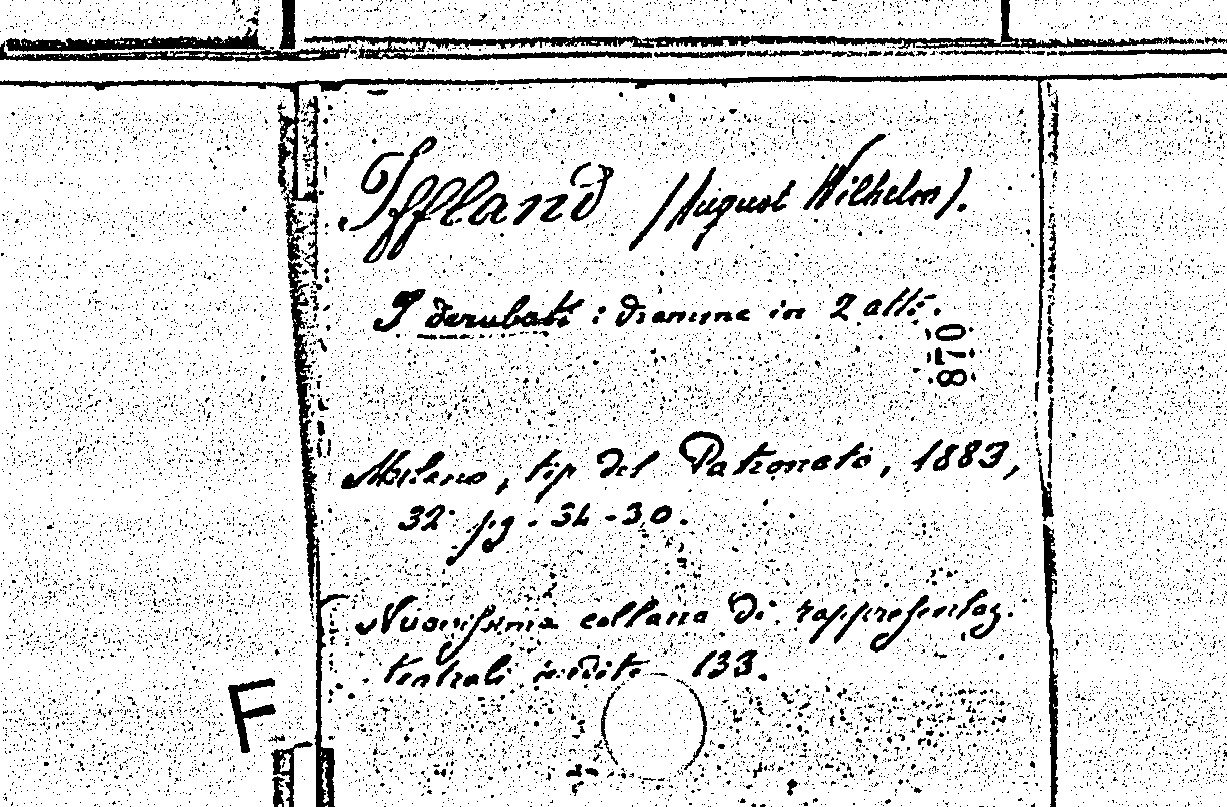 Iffland (August Wilhelm).
I derubati : dramma in 2 atti.
870
Milano, tip del Patronato, 1883,
32° pg. 54-30.
Nuovissima collana di rappresentaz.
teatrali inedite 133.
F